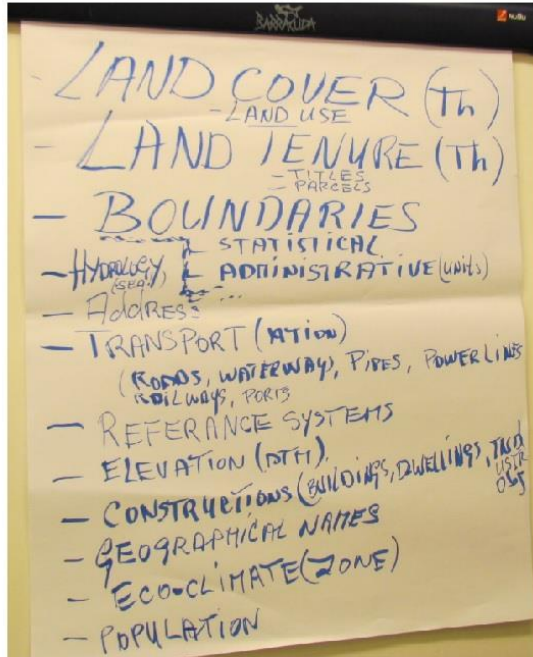 BARRACUDA
NOBO
- LAND COVER (Th)
- LAND USE
- LAND TENURE (Th)
- TITLES
- PARCELS
- BOUNDARIES
- STATISTICAL
- HYDROLOGY - ADMINISTRATIVE (UNITS)
- Address
- TRANSPORT (ATION)
(ROADS, WATERWAY), PIPES, POWER LINES
RAILWAYS, PORTS
- REFERANCE SYSTEMS
- ELEVATION (DTM).
- CONSTRUCTIONS (BUILDINGS, DWELLINGS,
- GEOGRAPHICAL NAMES
- ECO-CLIMATE (ZONE)
- POPULATION